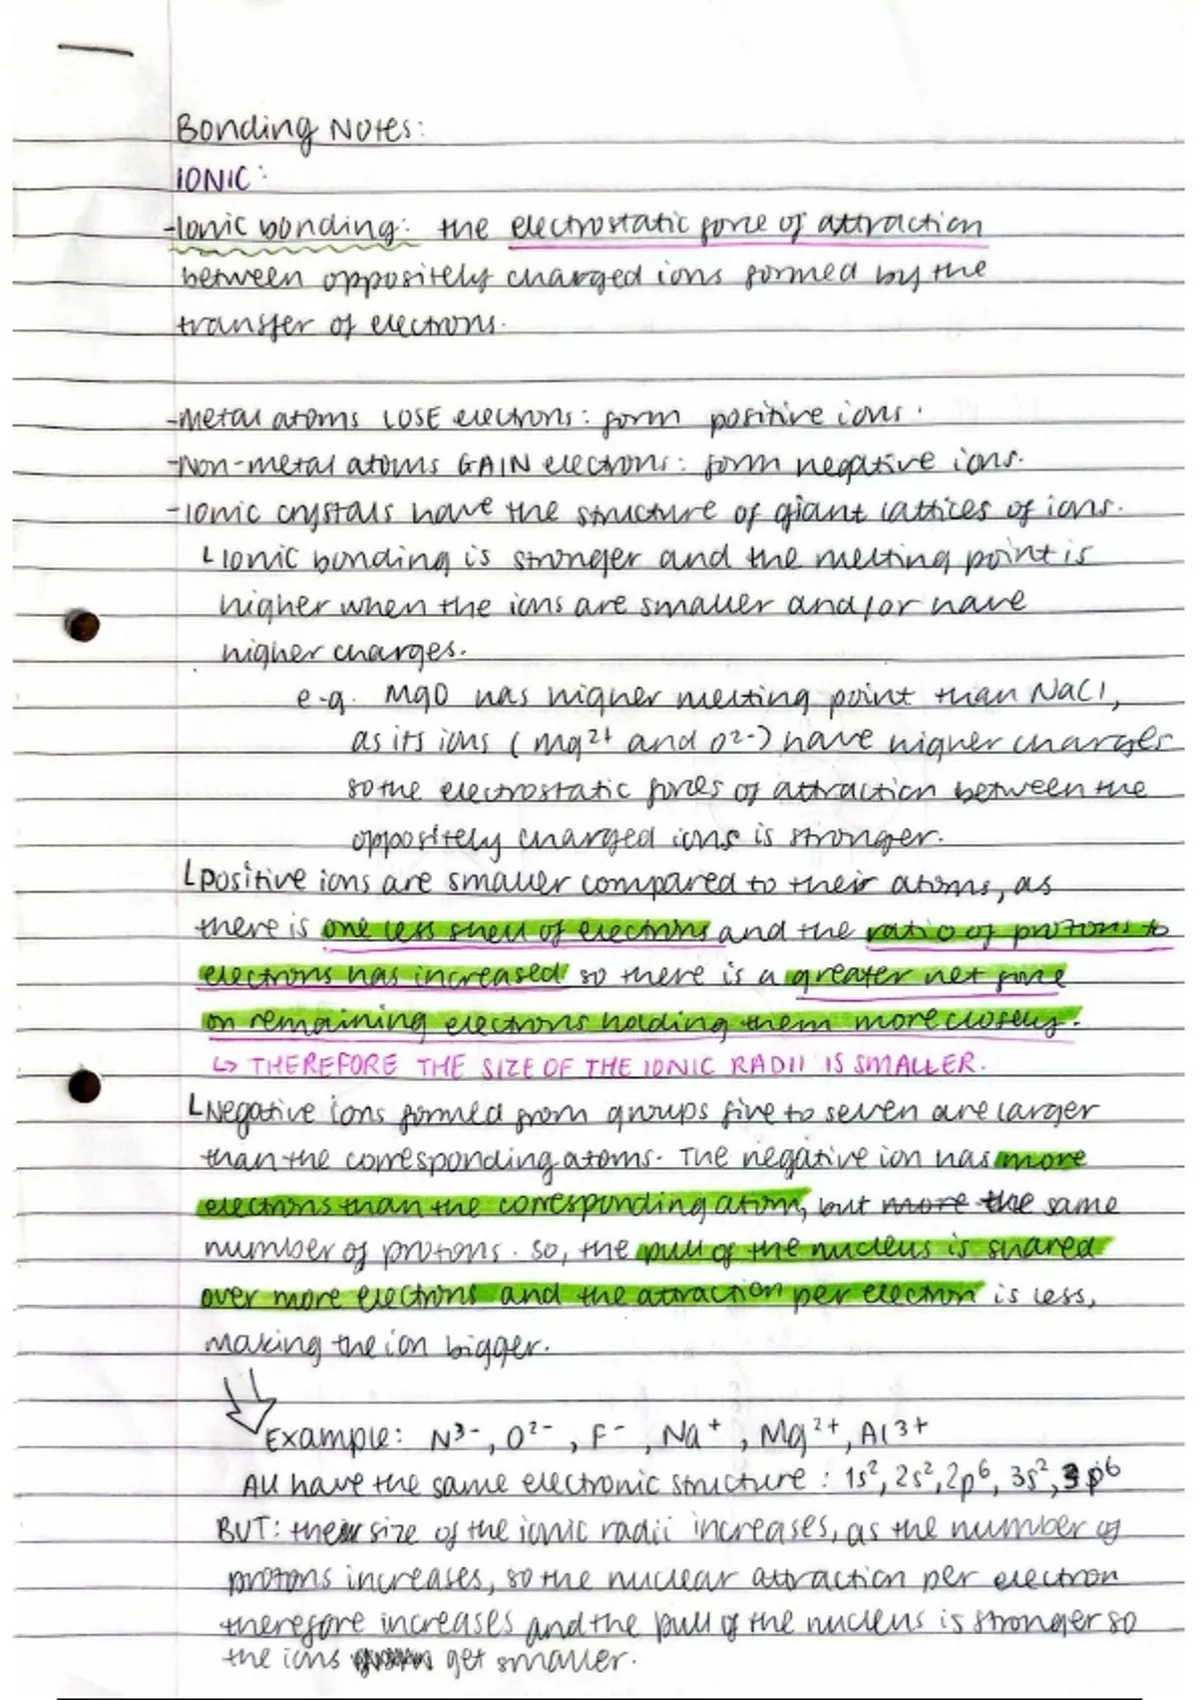 Bonding Notes:
IONIC:
-Ionic bonding: the electrostatic force of attraction
between oppositely charged ions formed by the
transfer of electrons.
-Metal atoms LOSE electrons: form positive ions.
-Non-metal atoms GAIN electrons: form negative ions.
-Ionic crystals have the structure of giant lattices of ions.
└Ionic bonding is stronger and the melting point is
higher when the ions are smaller and/or have
higher charges.
e.g. MgO has higher melting point than NaCl,
as its ions (Mg²⁺ and O²⁻) have higher charges
so the electrostatic forces of attraction between the
oppositely charged ions is stronger.
└Positive ions are smaller compared to their atoms, as
there is one less shell of electrons and the ratio of protons to
electrons has increased so there is a greater net force
on remaining electrons holding them more closely.
↳ THEREFORE THE SIZE OF THE IONIC RADII IS SMALLER.
└Negative ions formed from groups five to seven are larger
than the corresponding atoms. The negative ion has more
electrons than the corresponding atom, but more the same
number of protons. So, the pull of the nucleus is shared
over more electrons and the attraction per electron is less,
making the ion bigger.
Example: N³⁻, O²⁻, F⁻, Na⁺, Mg²⁺, Al³⁺
All have the same electronic structure: 1s², 2s², 2p⁶, 3s², 3p⁶
BUT: their size of the ionic radii increases, as the number of
protons increases, so the nuclear attraction per electron
therefore increases and the pull of the nucleus is stronger so
the ions get smaller.